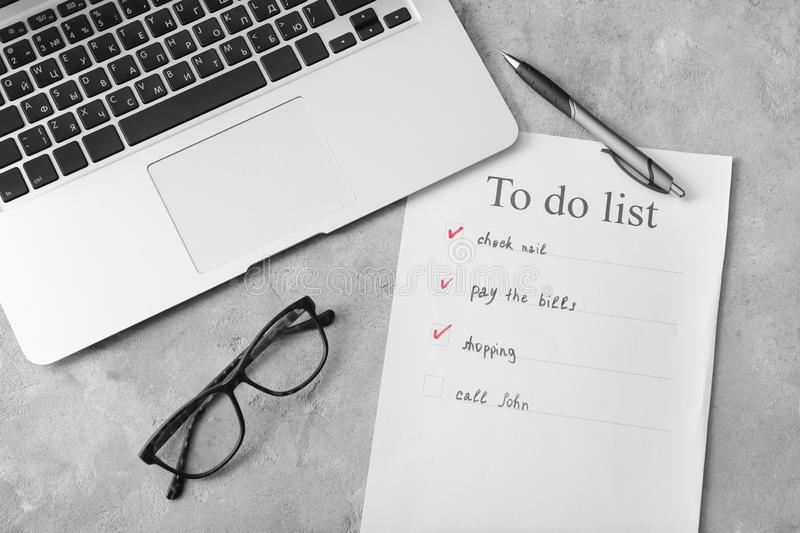 To do list
check mail
pay the bills
shopping
call John